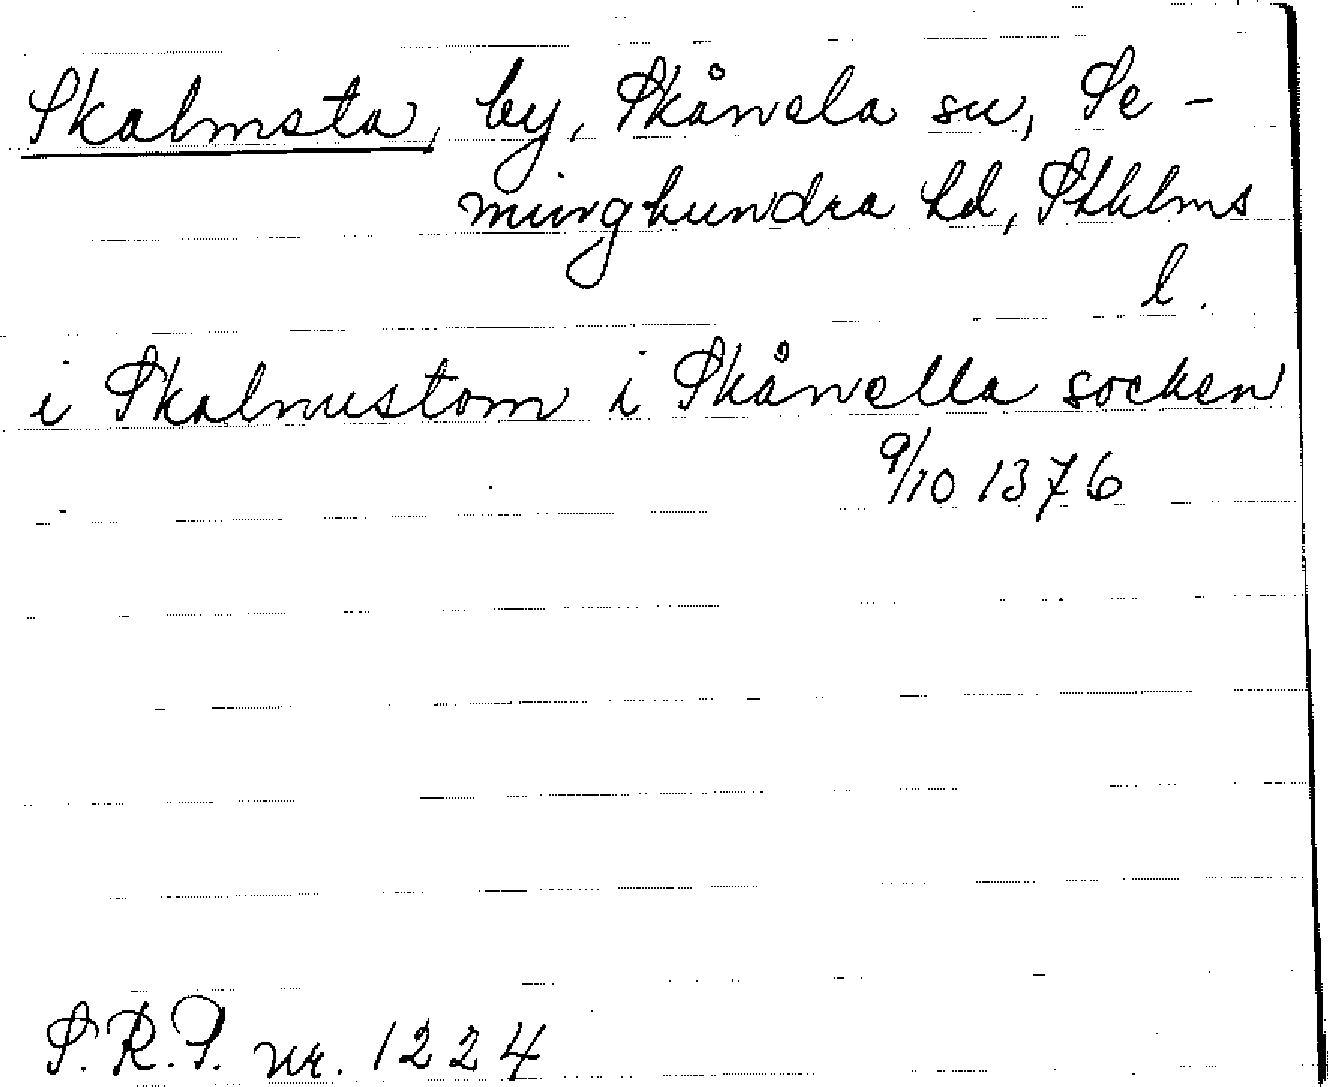 Skalmsta, by, Skånela sn, Se-
minghundra hd, Sthlms
l.
i Skalmustom i Skånella socken
9/10 1376
S.R.P. nr. 1224